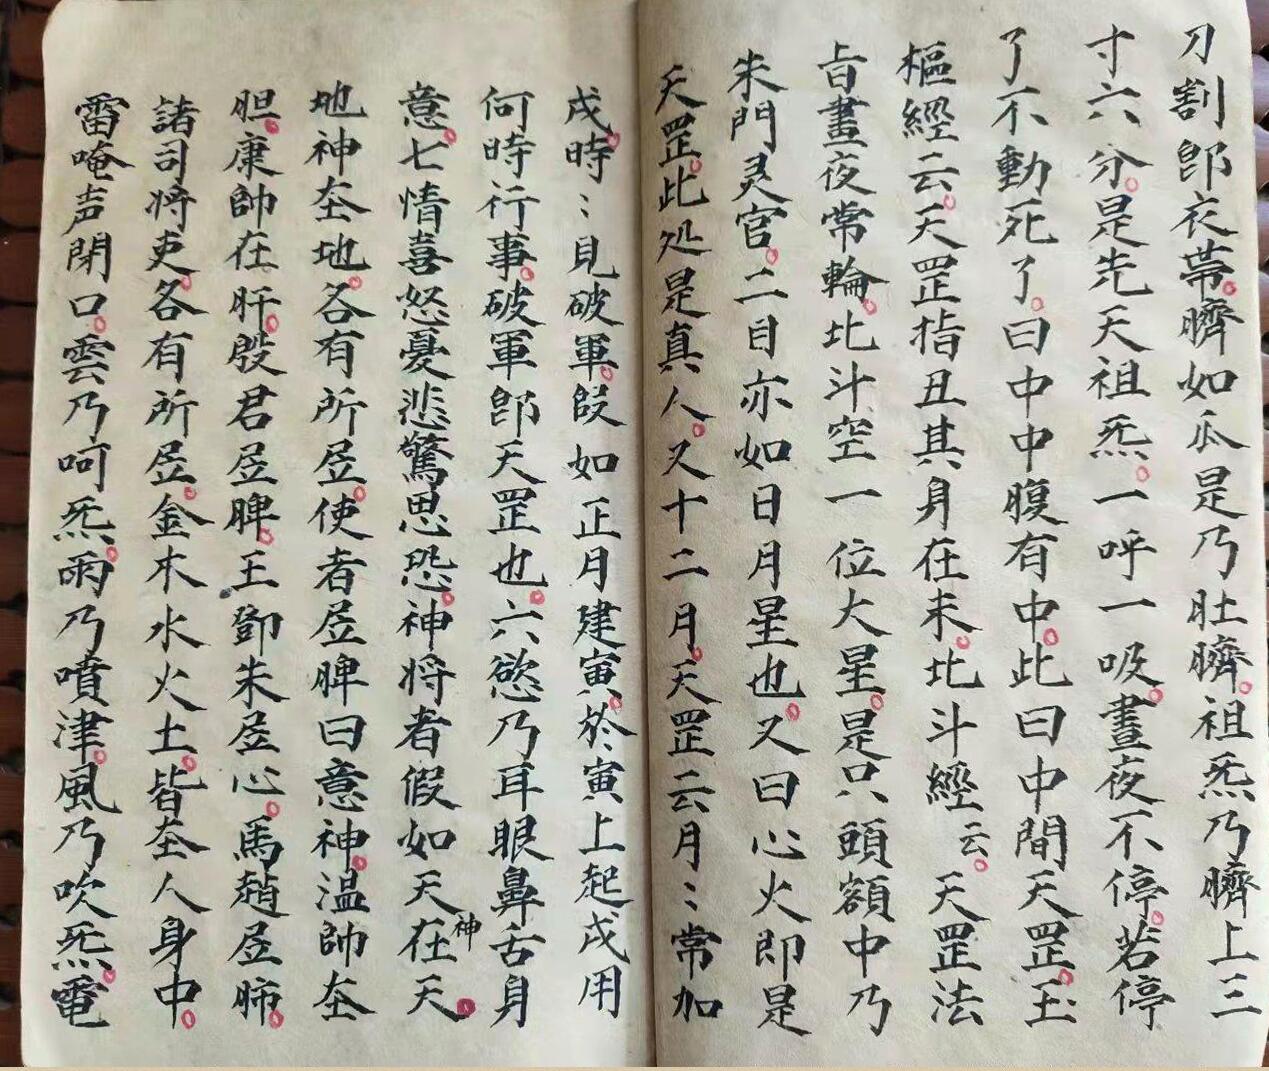 刀割卽衣帶臍如瓜是乃肚臍祖炁乃臍上三
寸六分是先天祖炁一呼一吸晝夜不停若停
了不動死了曰中中腹有中此曰中間天罡玉
樞經云天罡指丑其身在未北斗經云天罡法
旨晝夜常輪北斗空一位大星是只頭額中乃
朱門灵官二目亦如日月星也又曰心火即是
天罡此処是真人又十二月天罡云月〻常加
戌時〻見破軍叚如正月建寅於寅上起戌用
何時行事破軍卽天罡也六慾乃耳眼鼻舌身
意七情喜怒憂悲驚思恐神将者假如天神在天
地神在地各有所居使者居脾曰意神温帥在
胆康帥在肝殷君居脾王鄧朱居心馬趙居肺
諸司将吏各有所居金木水火土皆在人身中
雷唵声閉口雲乃呵炁雨乃噴津風乃吹炁電